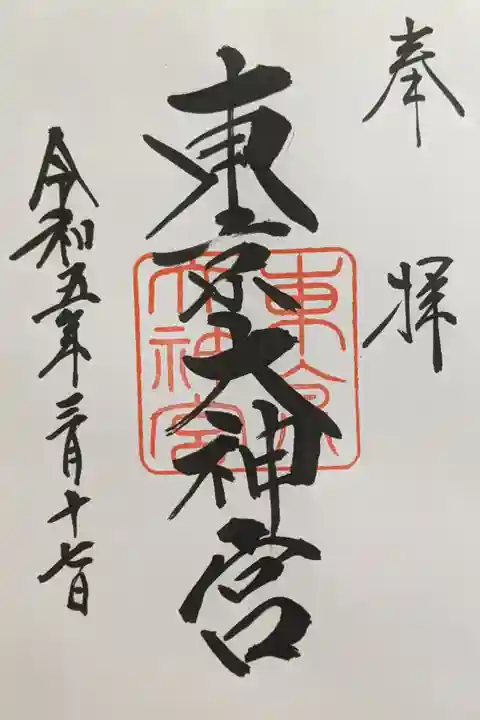 奉拝
東京大神宮
東京大神宮
令和五年三月十七日